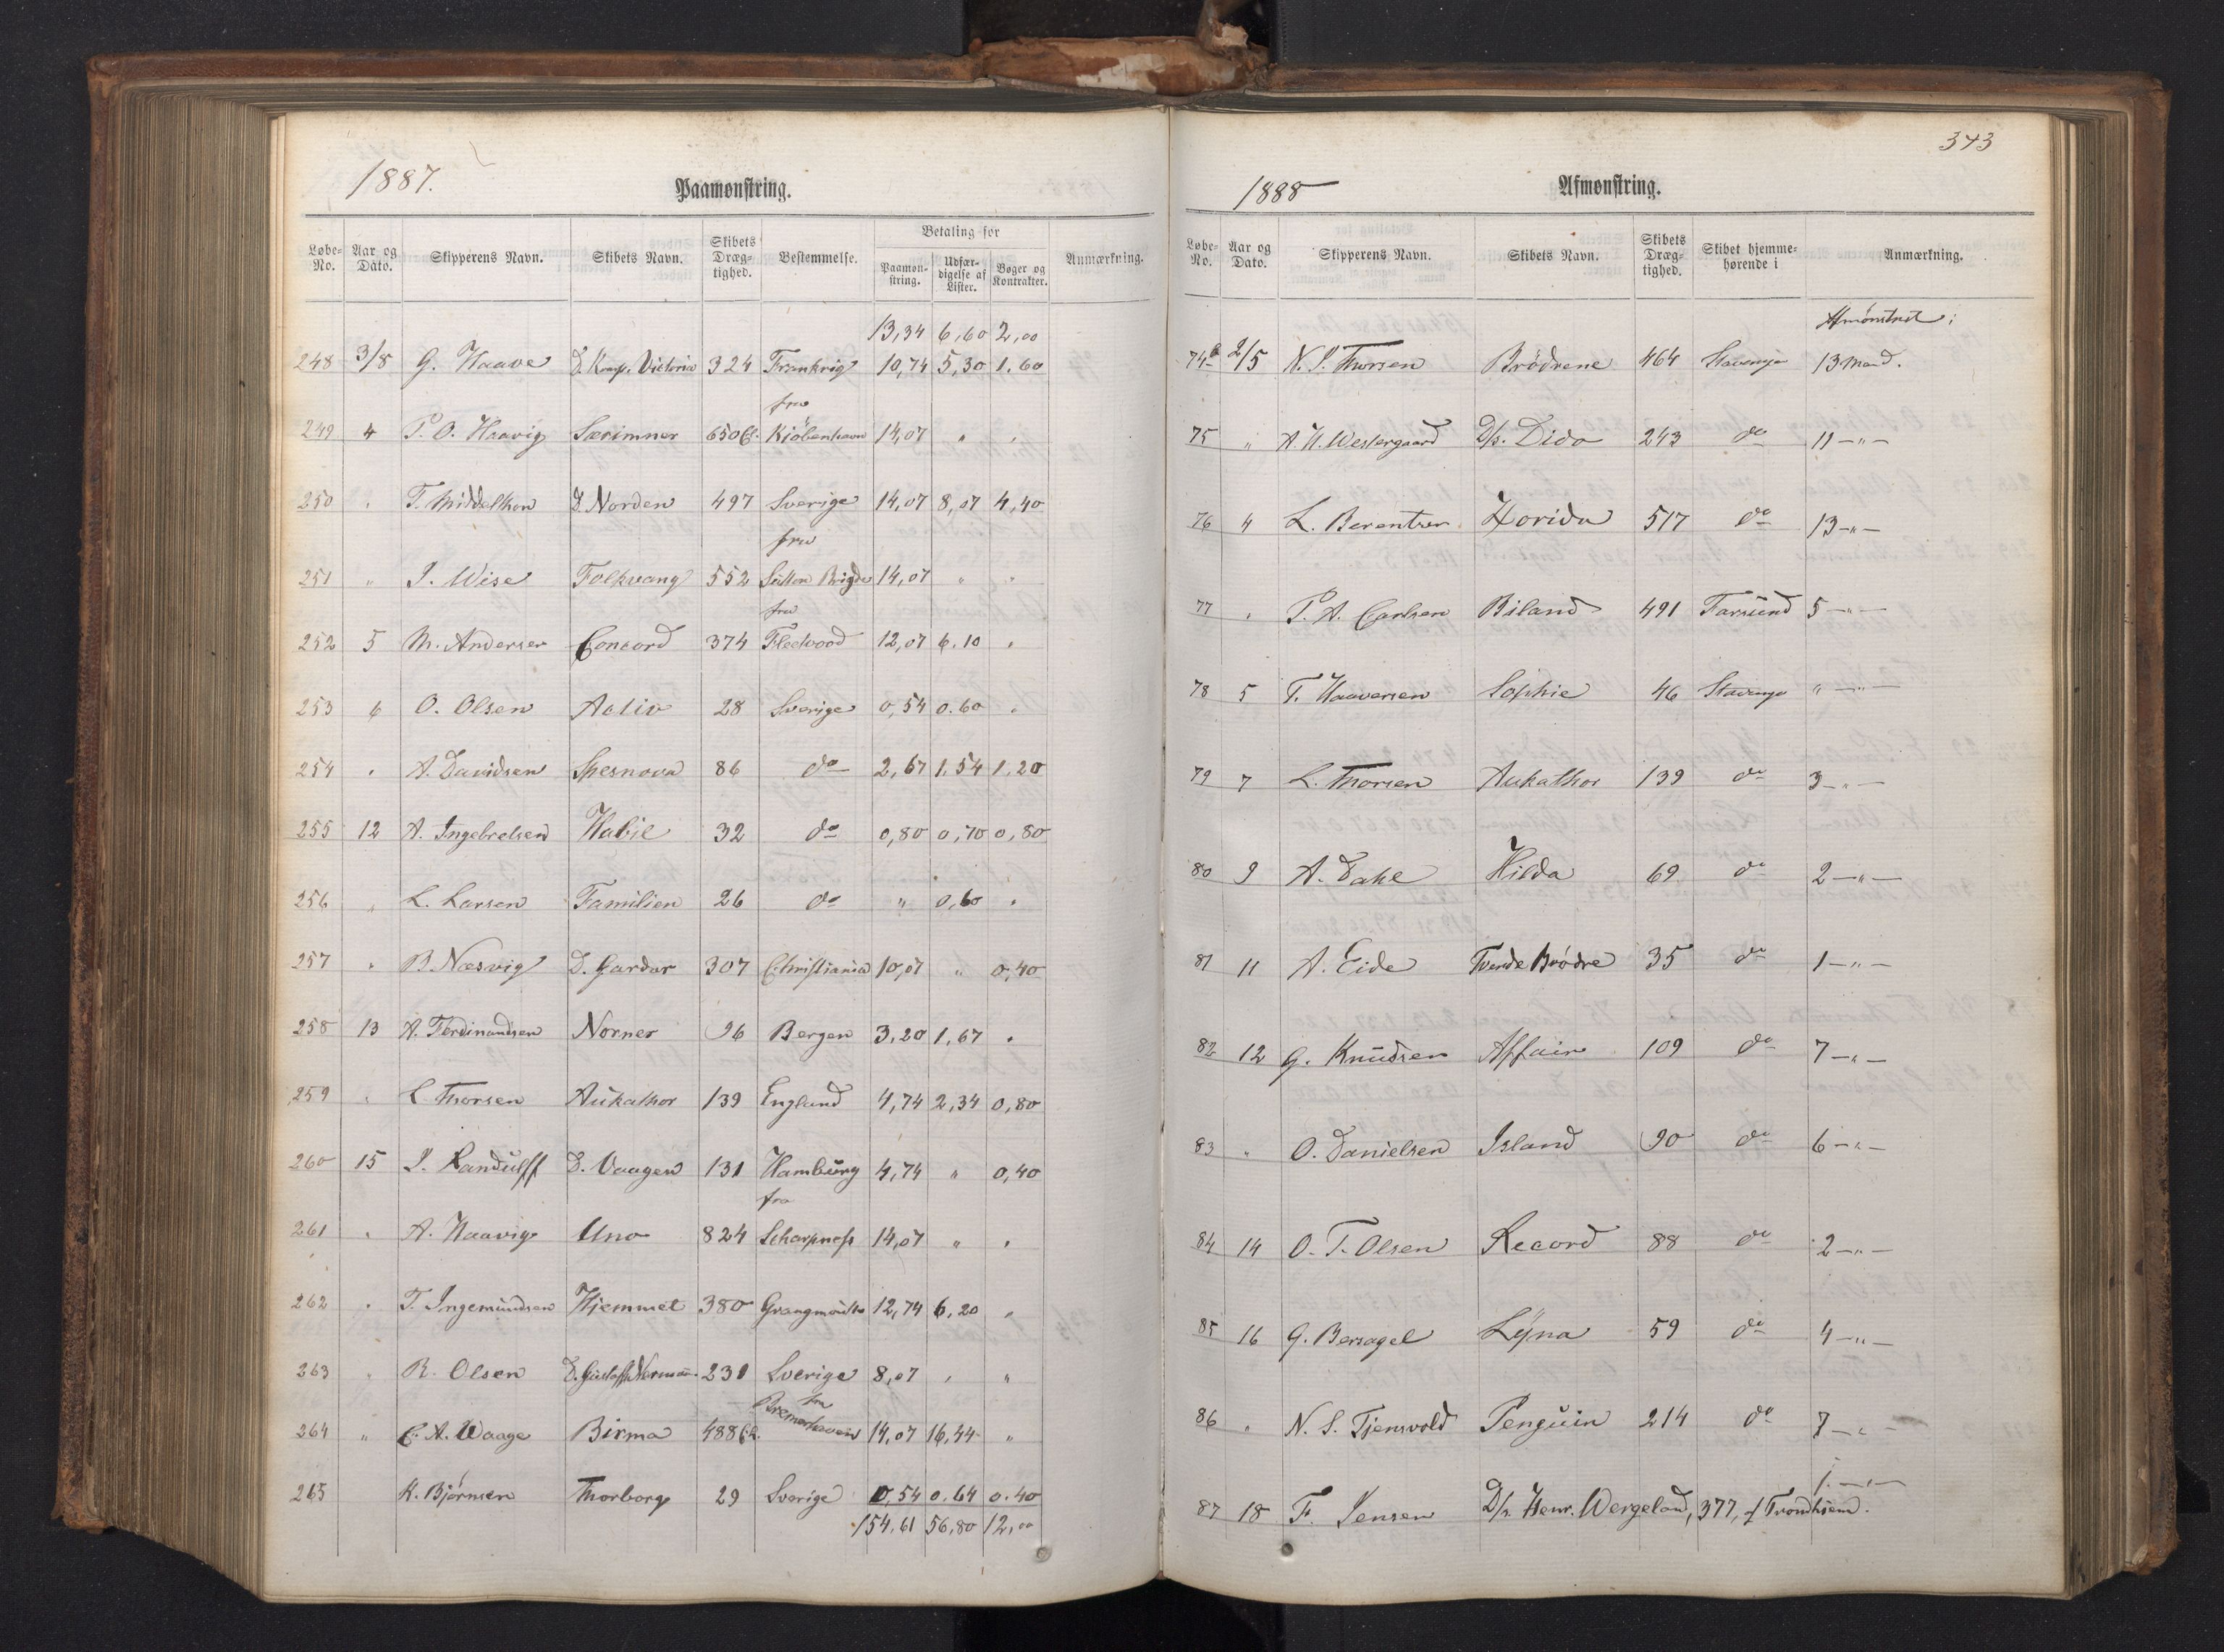 1887.
Paamønstring.
Løbe-No. Aar og Dato. Skipperens Navn. Skibets Navn. Skibets Drægtighed. Bestemmelse. Betaling for Paamønstring. Udfærdigelse af Lister. Bøger og Kontrakter. Anmærkning.
13,34 6,60 2,00
248 3/8 G. Haave D. Kronp. Victoria 324 Frankrig 10,74 5,30 1,60
fra
249 4 P. O. Haavig Særimner 650 Cl. Kiöbenhavn 14,07 " "
250 " T. Middelthon D. Norden 497 Sverige 14,07 8,07 4,40
fra
251 " J. Wise Folkvang 552 Sutton Brigde 14,07 " "
fra
252 5 M. Andersen Concord 374 Fleetwood 12,07 6.10 "
253 6 O. Olsen Activ 28 Sverige 0,54 0.60 "
254 " A. Davidsen Spesnova 86 do 2,67 1,54 1,20
255 12 A. Ingebretsen Habil 32 do 0,80 0,70 0,80
256 " L. Larsen Familien 26 do " 0,60 "
257 " B. Næsvig D. Gardar 307 Christiania 10,07 " 0,40
258 13 A. Ferdinandsen Norner 96 Bergen 3,20 1,67 "
259 " L. Thorsen Aukathor 139 England 4,74 2,34 0,80
260 15 J. Randulff D. Vaagen 131 Hamburg 4,74 " 0,40
fra
261 " A. Haavig Uno 824 Scharpness 14,07 " "
262 " T. Ingemundsen Hjemmet 380 Grangmouth 12,74 6,20 "
263 " R. Olsen 231 Sverige 8,07 " "
fra
264 " C. A. Waage Birma 488 Cl. Bremerhaven 14,07 16,44 "
265 K. Bjørnsen Thorborg 29 Sverige 0,54 0.64 0.40
154,61 56,80 12,00
343
1888
Afmønstring.
Løbe-No. Aar og Dato. Skipperens Navn. Skibets Navn. Skibets Drægtighed. Skibet hjemmehørende i Anmærkning.
Afmönstret:
74b 2/5 N. P. Thorsen Brödrene 464 Stavanger 13 Mand.
75 " A. H. Westergaard D/s. Dido 243 do 11 —"—
76 4 L. Berentsen Florida 517 do 13 —"—
77 " P. A. Carlsen Biland 491 Farsund 5 —"—
78 5 T. Haaversen Sophie 46 Stavanger " —"—
79 7 L. Thorsen Aukathor 139 do 3 —"—
80 9 A. Dahl Hilda 69 do 2 —"—
81 11 A. Eide Tvende Brödre 35 do 1 —"—
82 12 G. Knudsen Affair 109 do 7 —"—
83 " O. Danielsen Island 90 do 6 —"—
84 14 O. T. Olsen Record 88 do 2 —"—
85 16 G. Bersagel Lyna 59 do 4 —"—
86 " N. S. Tjensvold Penguin 214 do 7 —"—
1 —"—
87 18 F. Jensen D/s. Henr. Wergeland, 377, af Trondhjem.